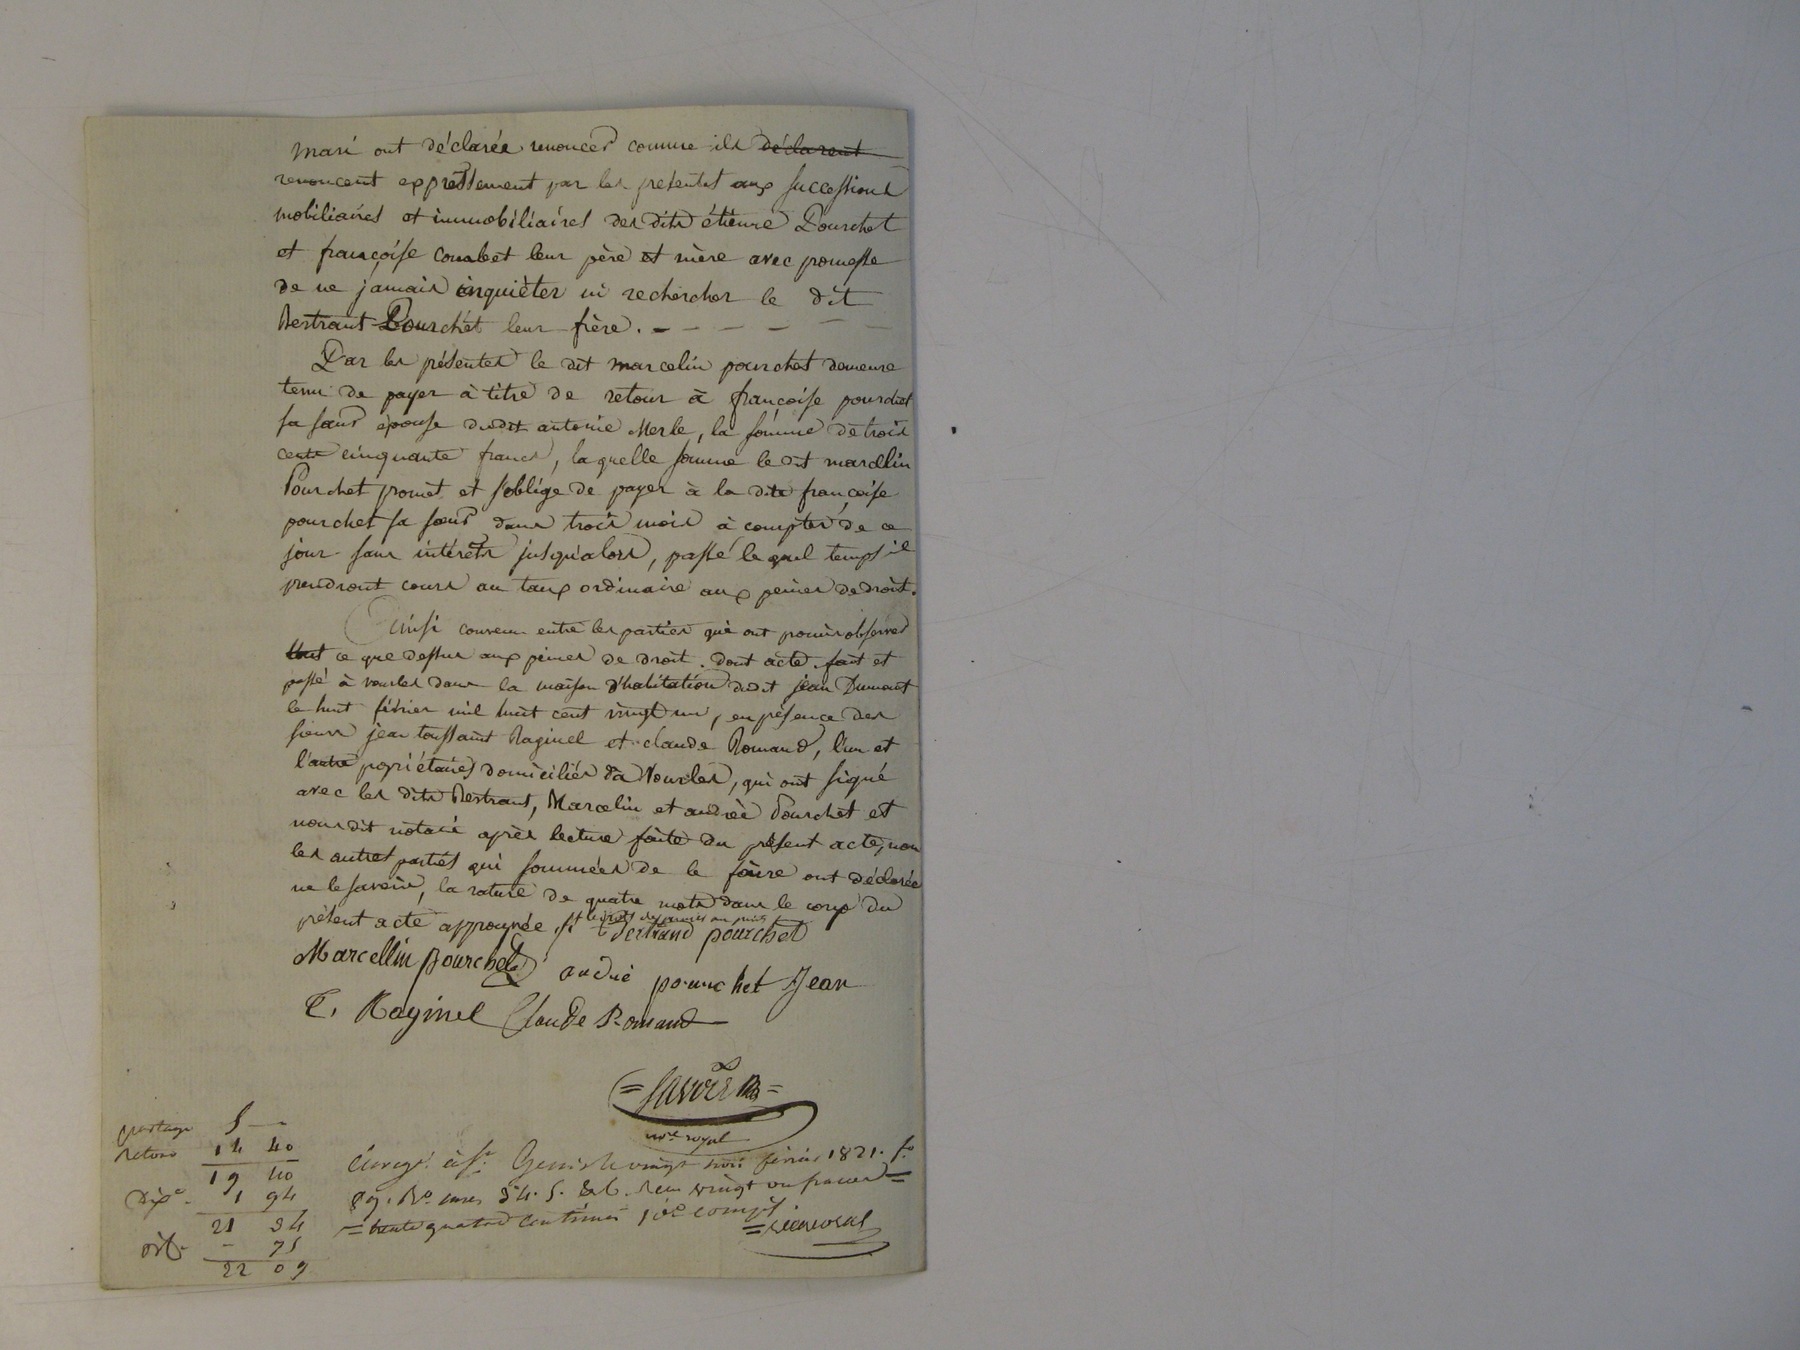 mari ont déclarée renoncer comme ils déclarent
renoncent expressement par les présentes aux successions
mobiliaires et immobiliaires des dits étienne Pourchet
et françoise combet leur père et mère avec promesse
de ne jamais inquiéter ni rechercher le dit
Bertrant Pourchet leur frère. - - - - - -
Par les présentes le dit marcelin pourchet demeure
tenu de payer à titre de retour à françoise pourchet
sa sœur épouse dudit antoine Merle, la somme de trois
cents cinquante francs, la quelle somme le dit marcellin
Pourchet promet et s'oblige de payer à la dite françoise
pourchet sa sœur dans trois mois à compter de ce
jour sans intérets jusqu'alors, passé le quel temps il
prendront cours au taux ordinaire aux peines de droit.
Ainsi convenu entre les parties qui ont promis observer
tout ce que dessus aux peines de droit. dont acte. fait et
passé à vourles dans la maison d'habitation dudit jean Dumont
le huit février mil huit cent vingt un, en présence des
sieurs jean toussaint Raginel et claude Romand, l'un et
l'autre popriétaires domiciliés à Vourles, qui ont signé
avec les dits Bertrant, Marcelin et andré Pourchet et
nous dit notaire après lecture faite du présent acte, non
les autres parties qui sommées de le faire ont déclarée
ne le savoir, la rature de quatre mots dans le corps du
présent acte approuvée
Bertrand pourchet
Marcellin pourchet andré pourchet Jean
T. Raginel Claude Romand
re royal
partage 5 —
retour 14 40
19 40
Dixe 1 94
21 34
- 75
22 09
Enregé à St. Genis le vingt trois février 1821. fo
89. Ro. cases 3. 4. 5. & 6. Reçu vingt un francs =
= trente quatre centimes 10e compris